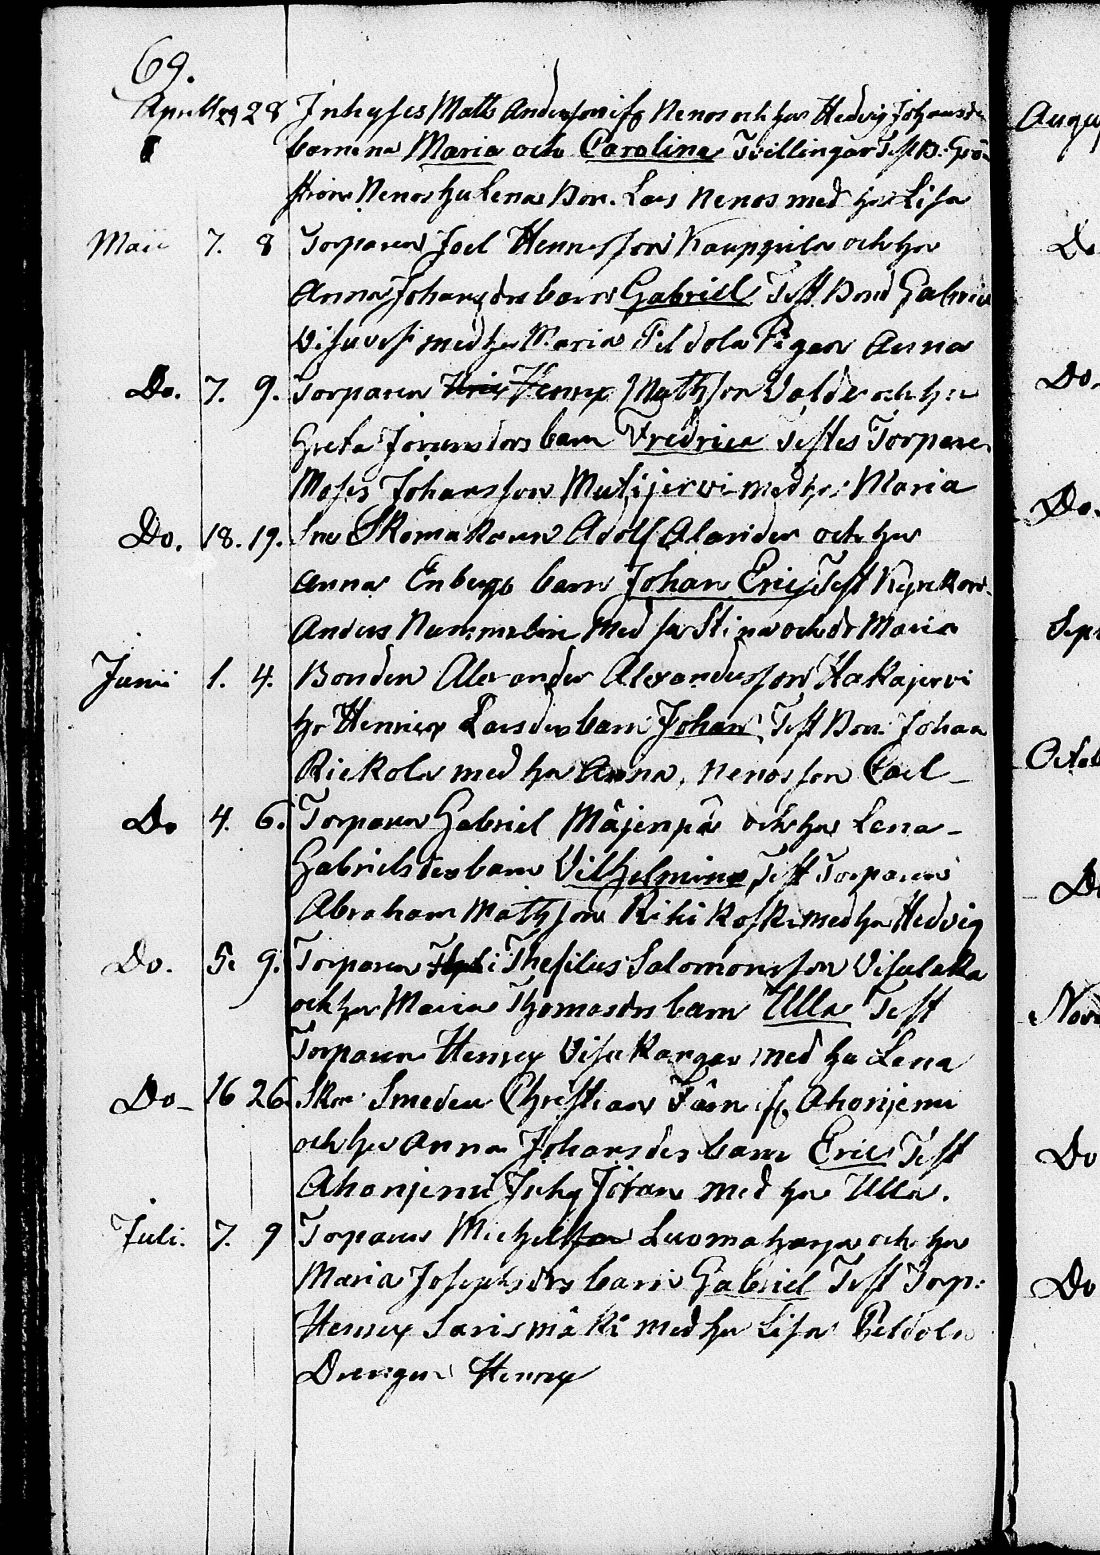 69.
Aprill 29 28 Inhyses Matts Andersson ifr Nenos och hu Hedvig Johansdr
barnena Maria och Caroline Tvillingar Test B. Grö
ström Nenos hu Lena Bon. Lars Nenos med hu Lisa
Maii 7. 8 Torparen Joel Hennesson Kauppila och hu
Anna Johansdrs barn Gabriel Test Bond Gabriel
Visuvesi med hu Maria Peldola Pigan Anna
Do. 7. 9. Torparen Henrx Mathsson Valde och hu
Greta Joransdors barn Fredrica Testes Torparen
Moses Johansson Mutijervi med hu: Maria
Do. 18. 19. Sne Skomakaren Adolf Alander och hu
Anna Enbergs barn Johan Eric Test Kyrckov.
Anders Nummelin med hu Stina och dr Maria
Junii 1. 4. Bonden Alexander Alexandersson Hakajervi
hr Henricx Larsdrs barn Johan Test Bon Johan
Rickola med hu Anna, Nenos son Carl
Do 4. 6. Torparen Gabriel Mäjenpä och hu Lena
Gabrielsdrs barn Vilhelmina Test Torparen
Abraham Mathsson Rihikoski med hu Hedvig
Do. 5. 9. Torparen Thefilus Salomonsson Visulaka
och hu Maria Thomasdrs barn Ulla Test
Torparen Henrx Visa Kangas med hu Lena
Do 16 26. Skr Smeden Christian Färn ifr Ahonjemi
och hu Anna Johansdrs barn Eric Test
Ahonjemi Inhy Jöran med hu Ulla.
Juli. 7. 9 Torparen Michel Luomaharja och hu
Maria Josephsdrs barn Gabriel Test Torp:
Henrx Sarismäki med hu Lisa Peldola
Drengen Henrx
Augu
Do
Do.
Do.
Sept
Octob
Do
Nov
Do
Do